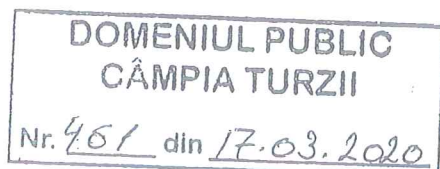 DOMENIUL PUBLIC
CÂMPIA TURZII
Nr. 461 din 17.03.2020